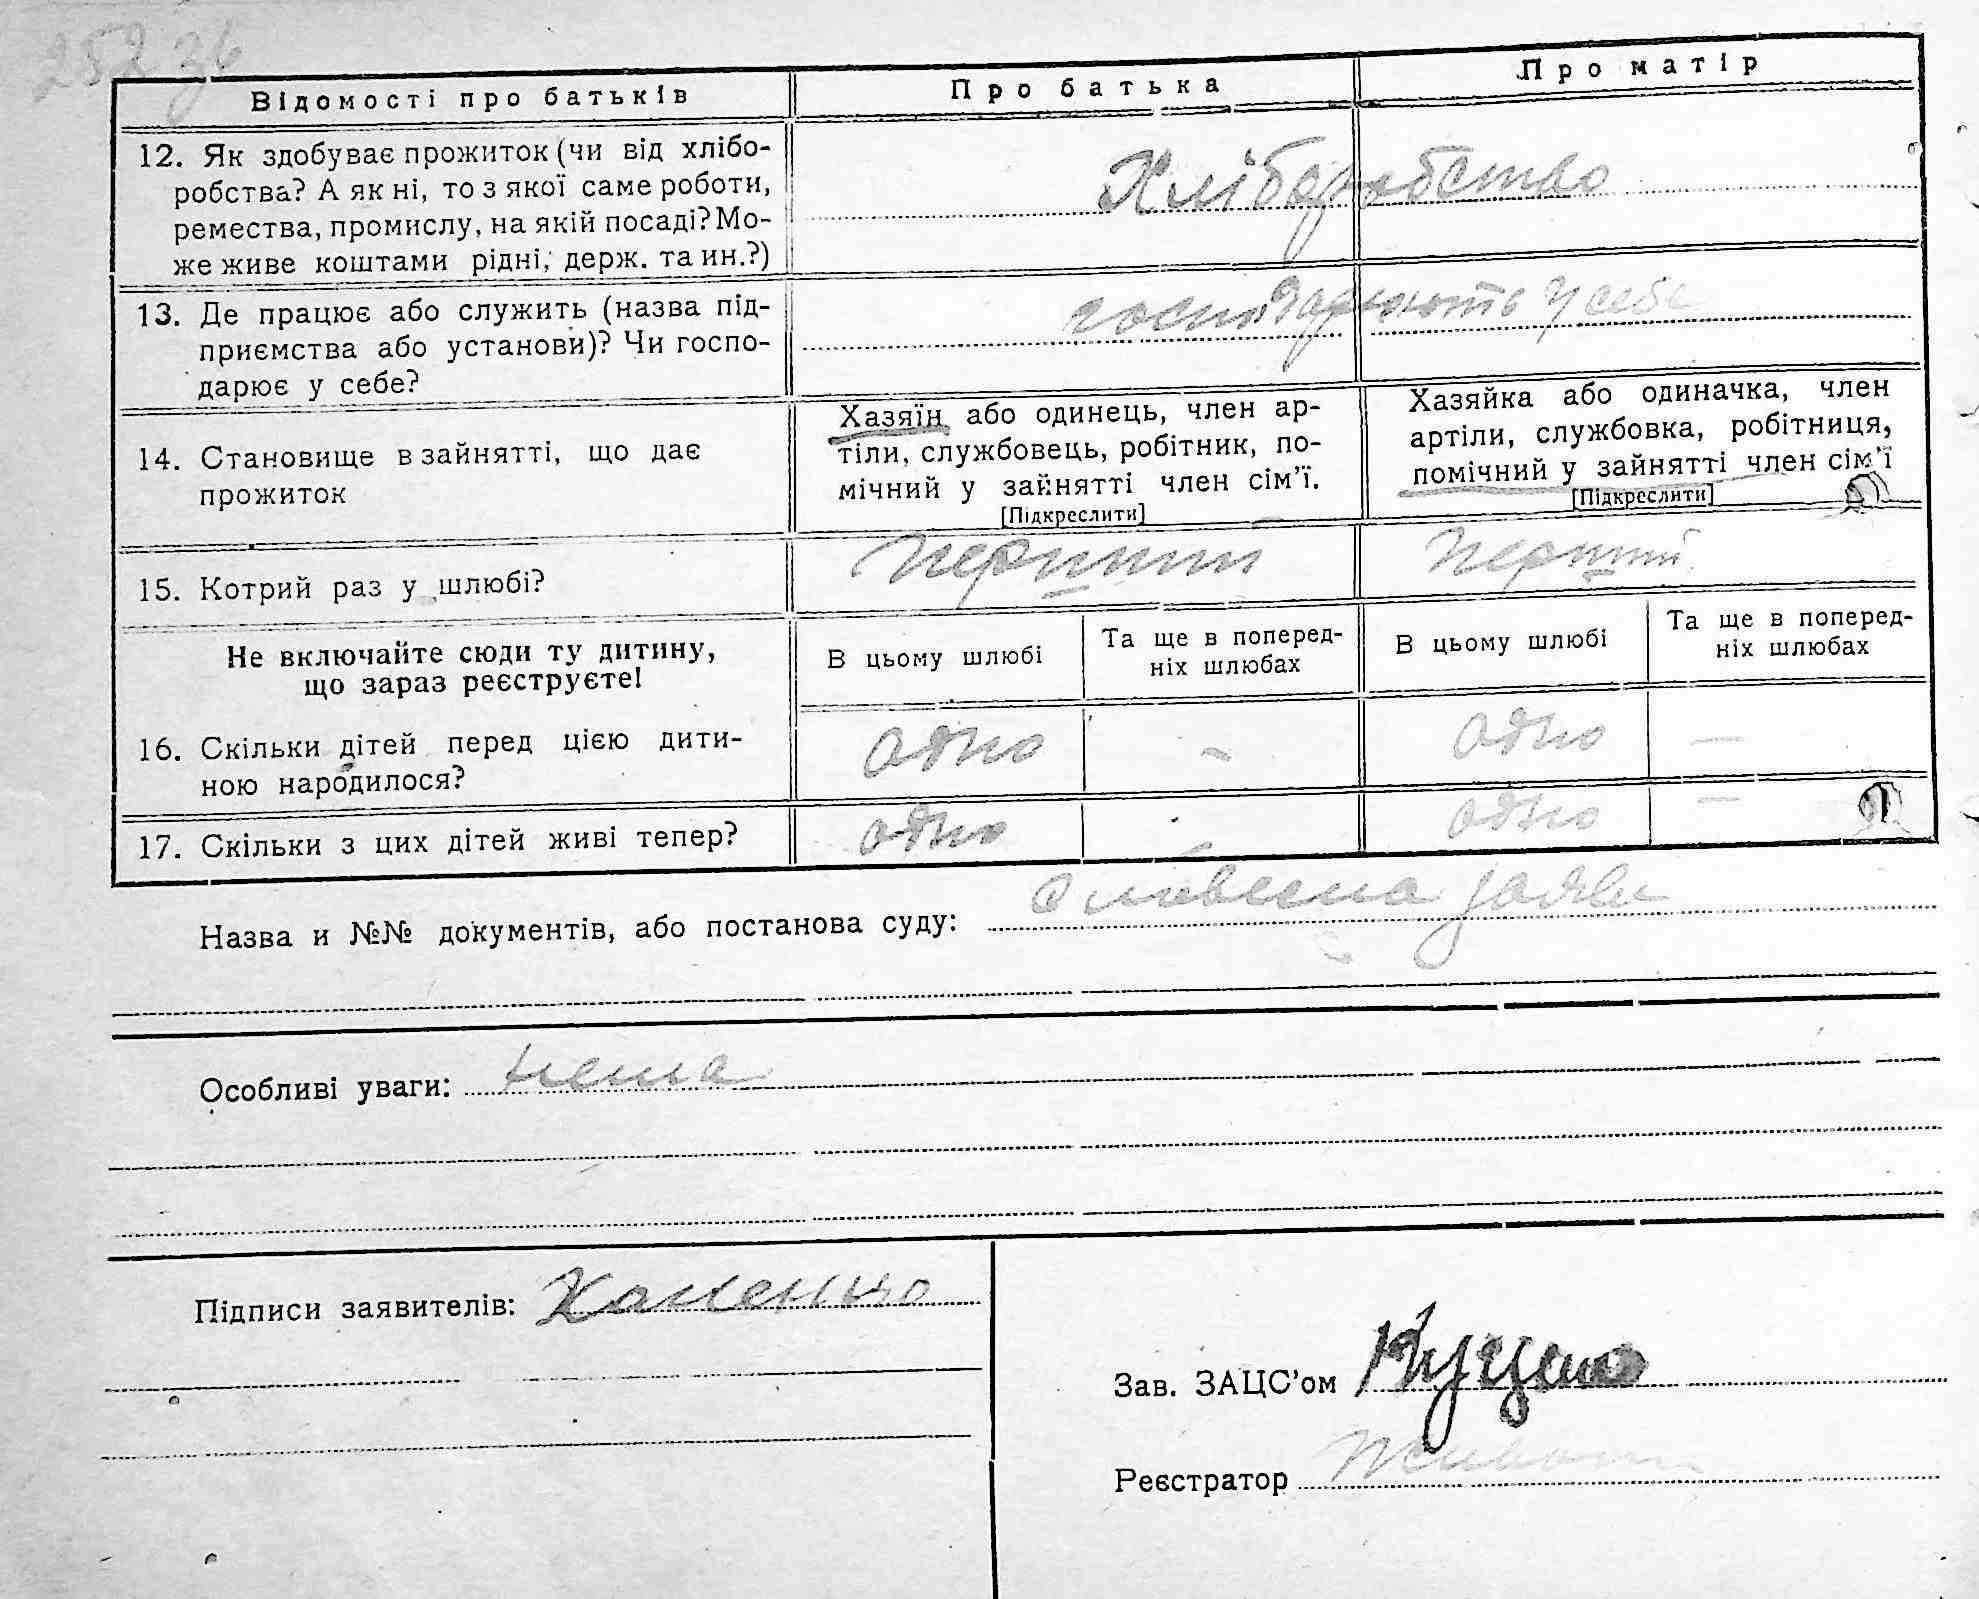 252 зб
Відомості про батьків
Про батька
Про матір
12. Як здобуває прожиток (чи від хлібо-
робства? А як ні, то з якої саме роботи,
ремества, промислу, на якій посаді? Мо-
же живе коштами рідні, держ. та ин.?)
Хліборобство
13. Де працює або служить (назва під-
приємства або установи)? Чи госпо-
дарює у себе?
господарюють у себе
14. Становище в зайнятті, що дає
прожиток
Хазяїн або одинець, член ар-
тіли, службовець, робітник, по-
мічний у зайнятті член сім'ї.
[Підкреслити]
Хазяйка або одиначка, член
артіли, службовка, робітниця,
помічний у зайнятті член сім'ї
[Підкреслити]
15. Котрий раз у шлюбі?
перший
перший
Не включайте сюди ту дитину,
що зараз реєструєте!
В цьому шлюбі
Та ще в поперед-
ніх шлюбах
В цьому шлюбі
Та ще в поперед-
ніх шлюбах
16. Скільки дітей перед цією дити-
ною народилося?
одно
-
одно
—
17. Скільки з цих дітей живі тепер?
одно
-
одно
—
Назва и №№ документів, або постанова суду: Словесна заява
Особливі уваги: нема
Підписи заявителів:
Зав. ЗАЦС'ом
Реєстратор